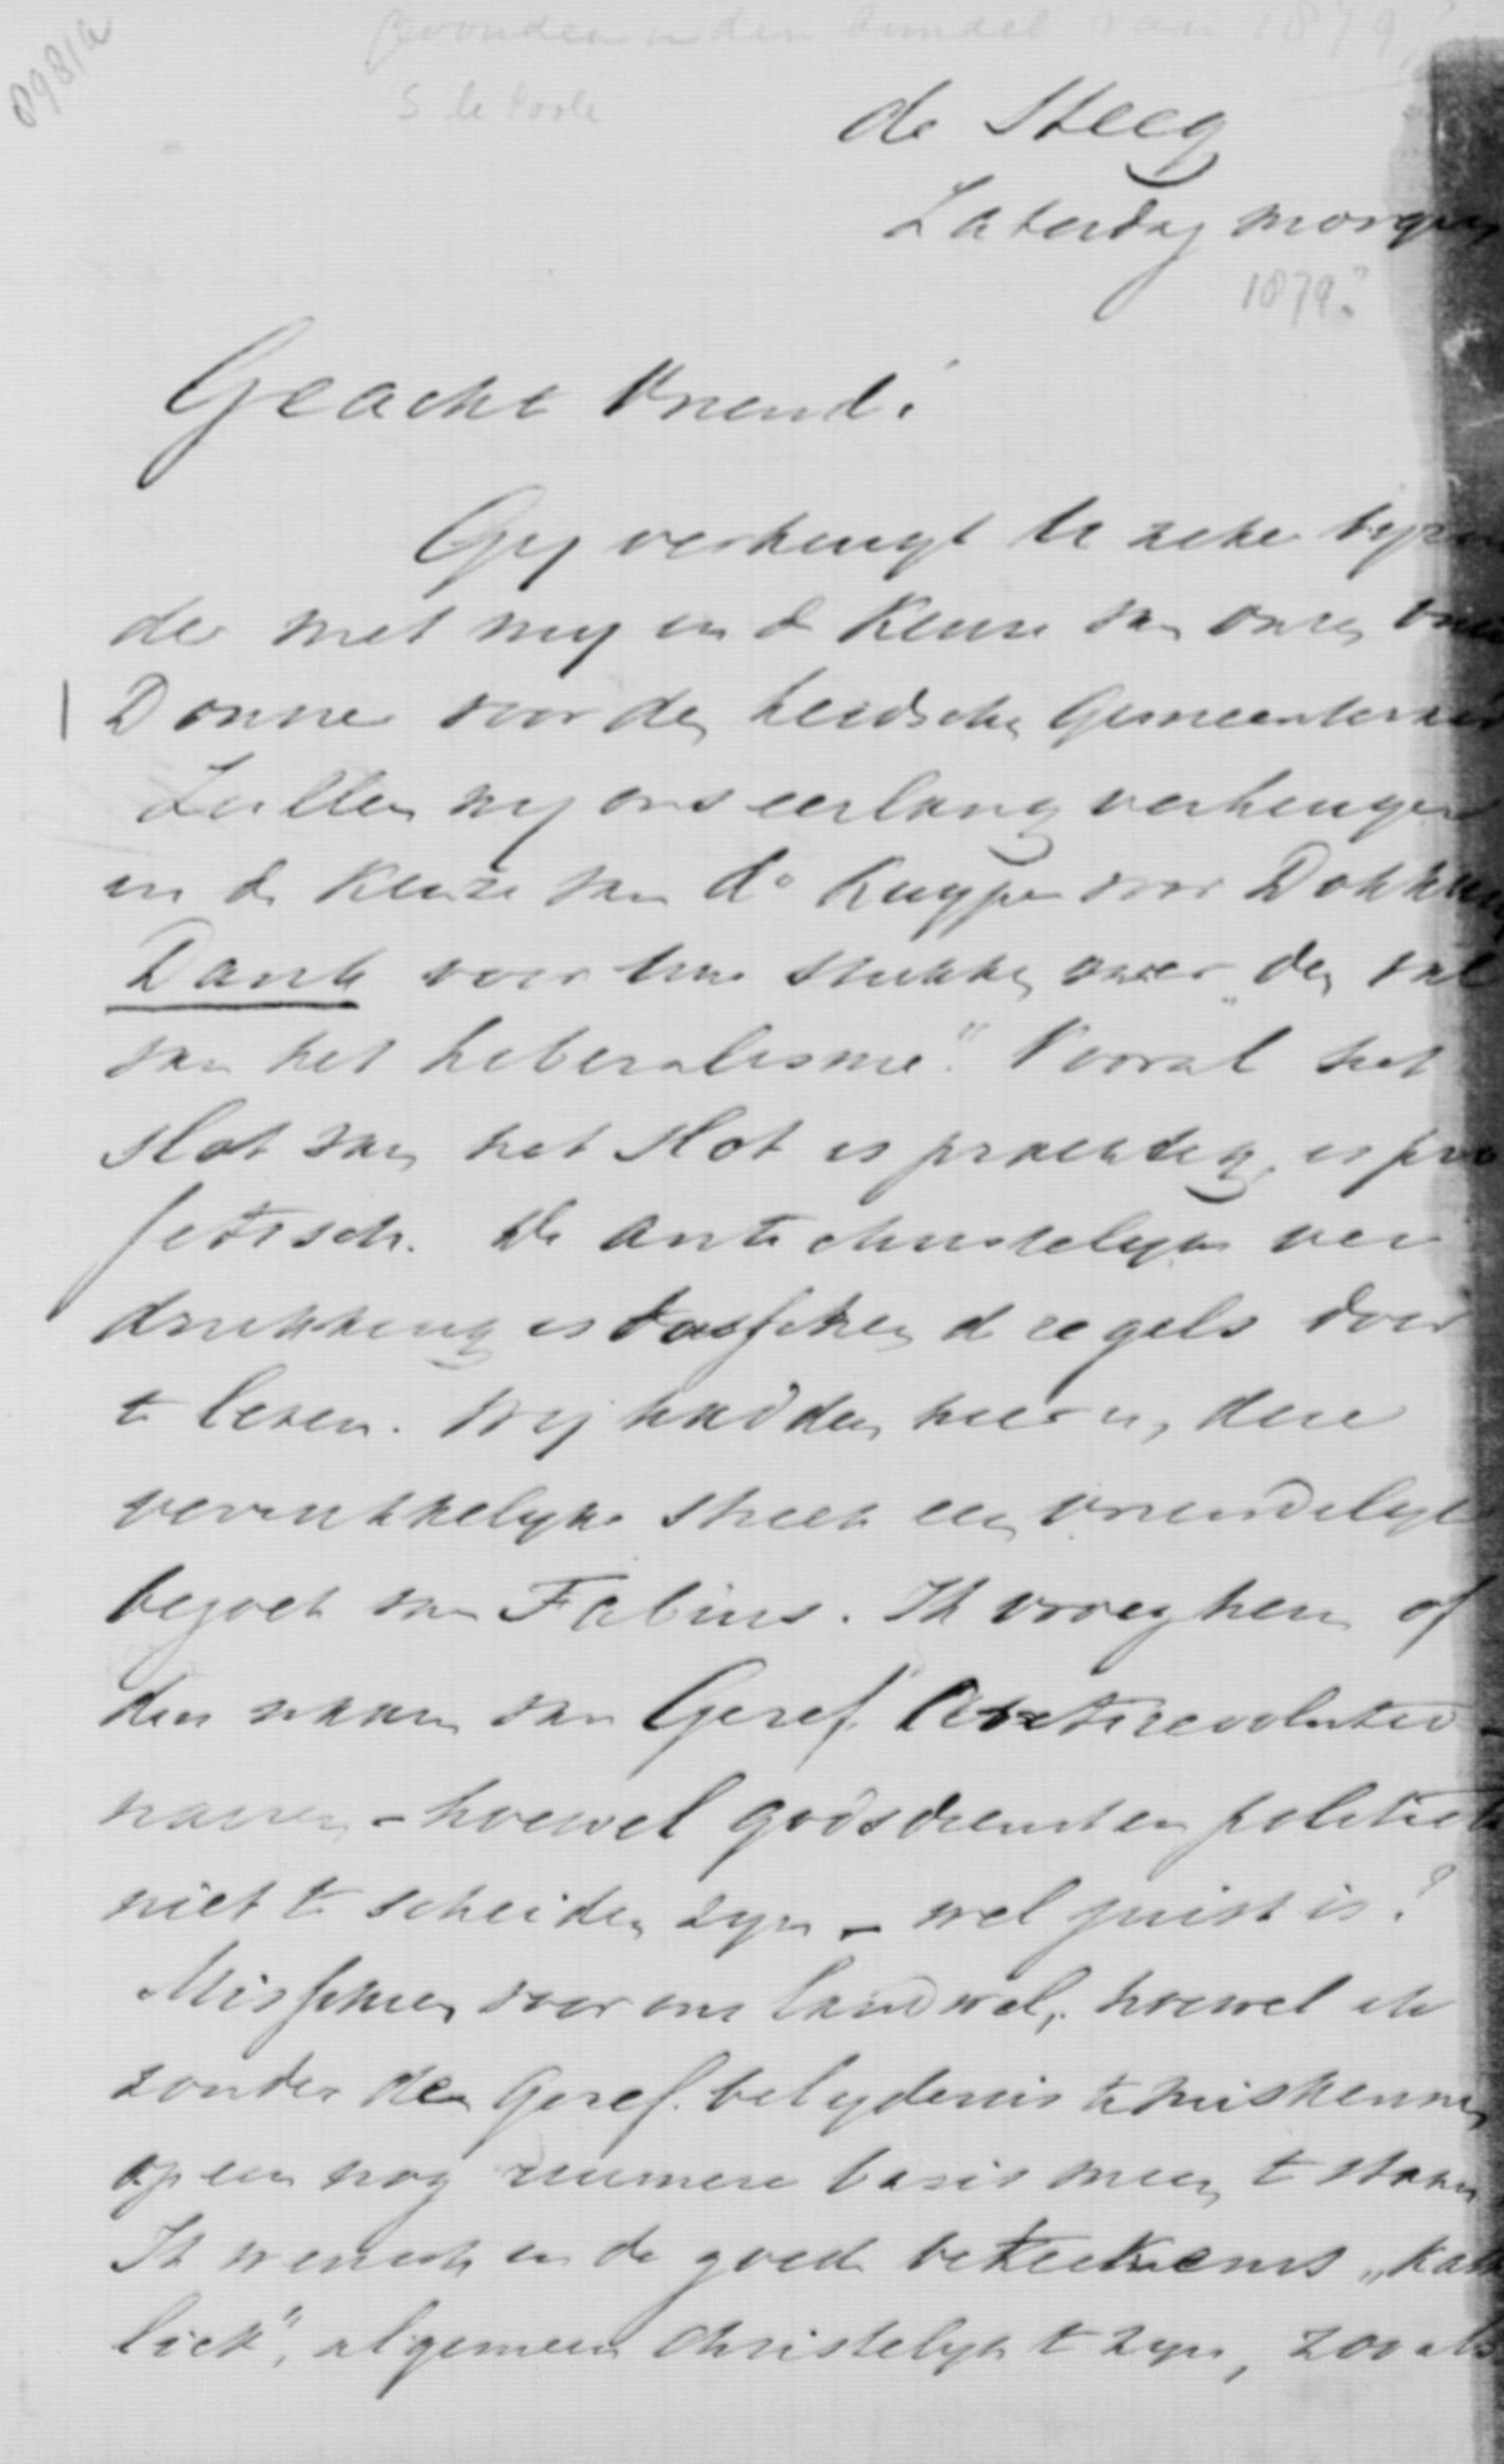 0981a
gevonden in den bundel van 1879,
S le Poole
de Steeg
Zaterdag morgen
1879?
Geachte Vriend!
Gy verheugt U zeker byzon
der met my in de Keuze van onzen
Donner voor den Leidschen Gemeenteraad
Zullen wy ons eerlang verheugen
in de Keuze van Ds Kuyper voor Dokkum
Dank voor Uwe stukken over „den val
van het Liberalisme". Vooral het
slot van het slot is prachtig, is pro
fetisch. De antichristelyke ver
drukking is tusschen de regels door
te lezen. Wy hadden hier in deze
verrukkelyke streek een vriendelyk
bezoek van Fabius. Ik vroeg hem of
den naam van Geref. Antirevolutio-
nairen - hoewel godsdienst en politiek
niet te scheiden zyn - wel juist is?
Misschien voor ons land wel, hoewel ik
zonder de Geref. belydenis te miskennen
op een nog ruimere basis meen te staan
Ik wensch in de goede beteekenis „Katho
liek", algemeen Christelyk te zyn, zooals